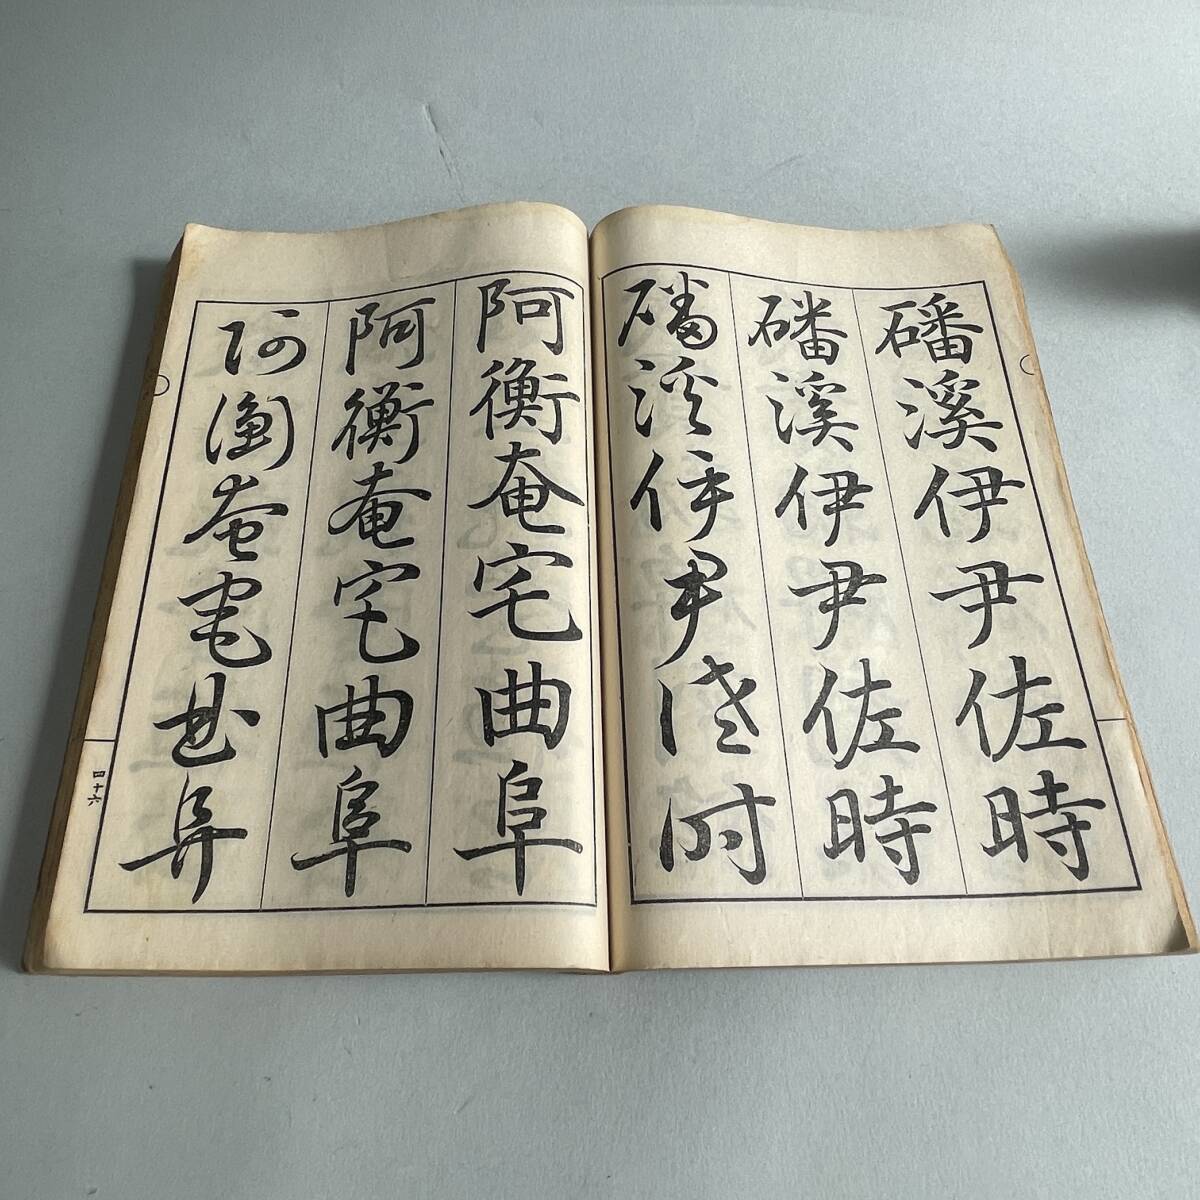 磻溪伊尹佐時
磻溪伊尹佐時
磻溪伊尹佐時
阿衡奄宅曲阜
阿衡奄宅曲阜
阿衡奄宅曲阜
四十六